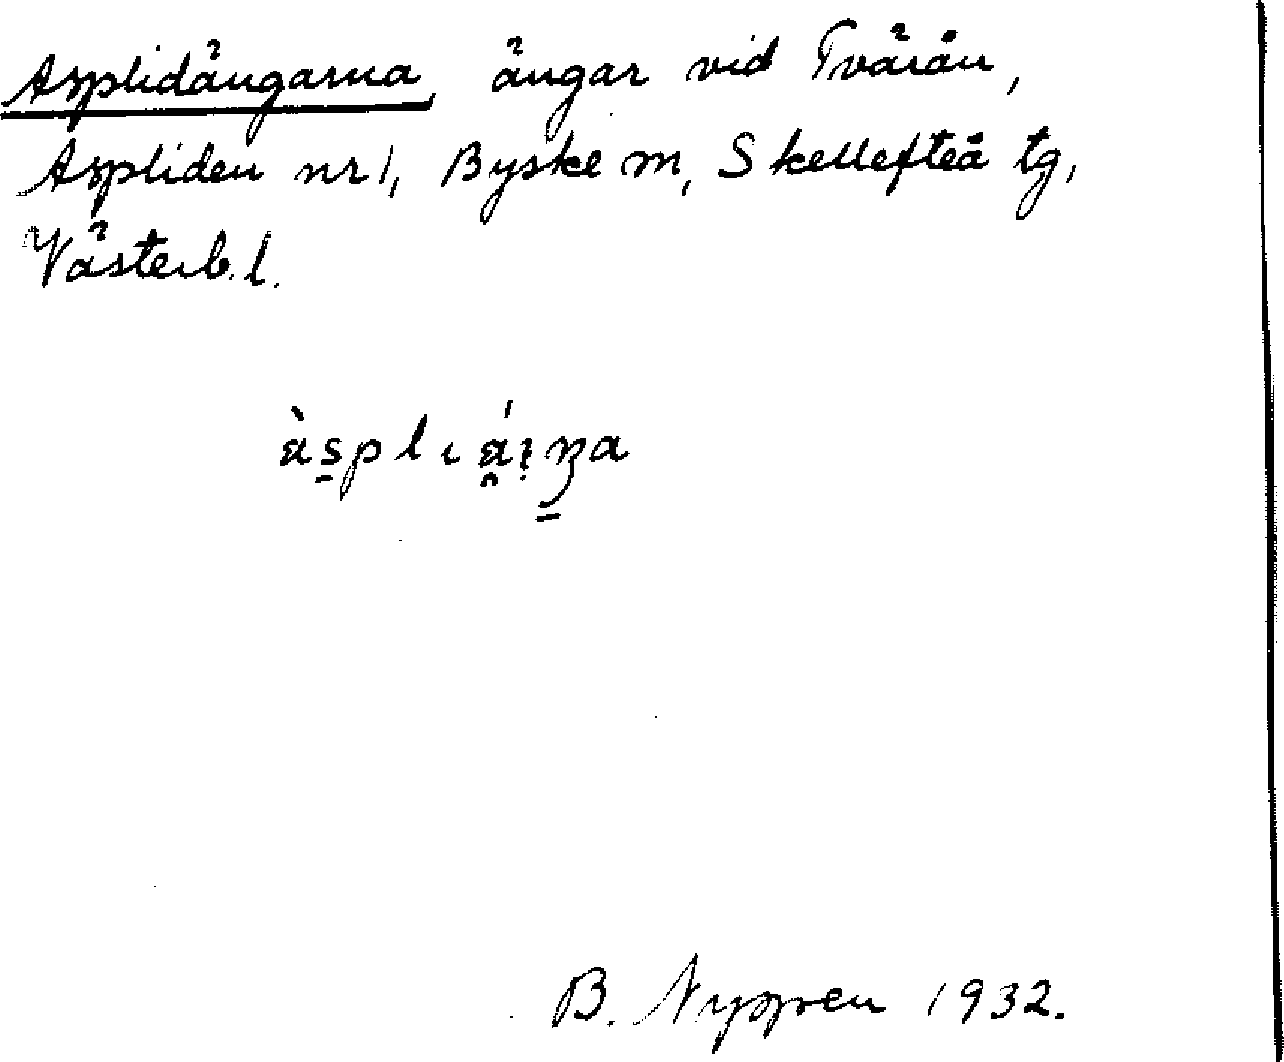 Asplidängarna, ängar vid Tvärån,
Aspliden nr 1, Byske m, Skellefteå tg,
Västerb. l.
B. Nyppren 1932.